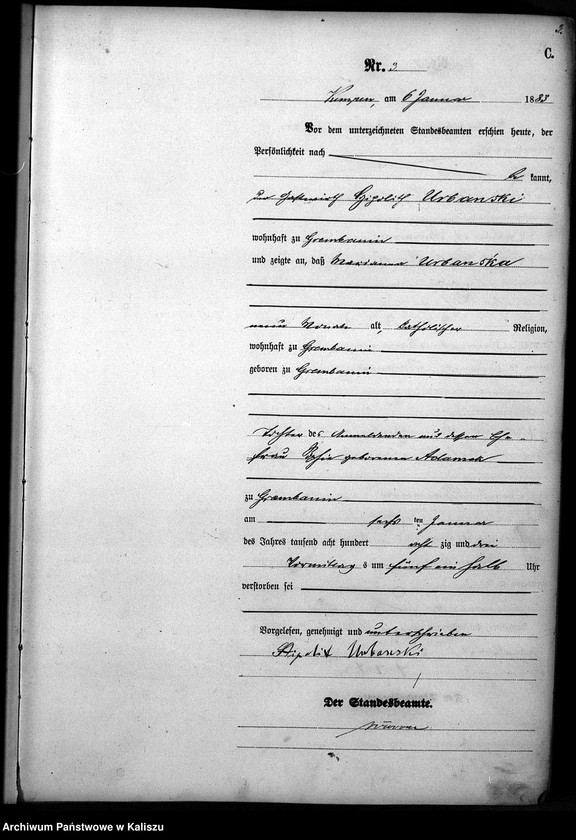 3.
C.
Nr. 3
Kempen, am 6 Januar 1883
Vor dem unterzeichneten Standesbeamten erschien heute, der
Persönlichkeit nach
be kannt,
der Gastwirth Hipolith Urbanski
wohnhaft zu Grembanin
und zeigte an, daß Marianna Urbanska
neun Monate alt, katholischer Religion,
wohnhaft zu Grembanin
geboren zu Grembanin
Tochter des Anmeldenden und dessen Ehe-
frau geborenen Adamek
zu Grembanin
am sechs ten Januar
des Jahres tausend acht hundert acht zig und drei
Vormittag s um fünf ein halb Uhr
verstorben sei
Vorgelesen, genehmigt und unterschrieben
Hipolit Urbanski
Der Standesbeamte.
Archiwum Państwowe w Kaliszu